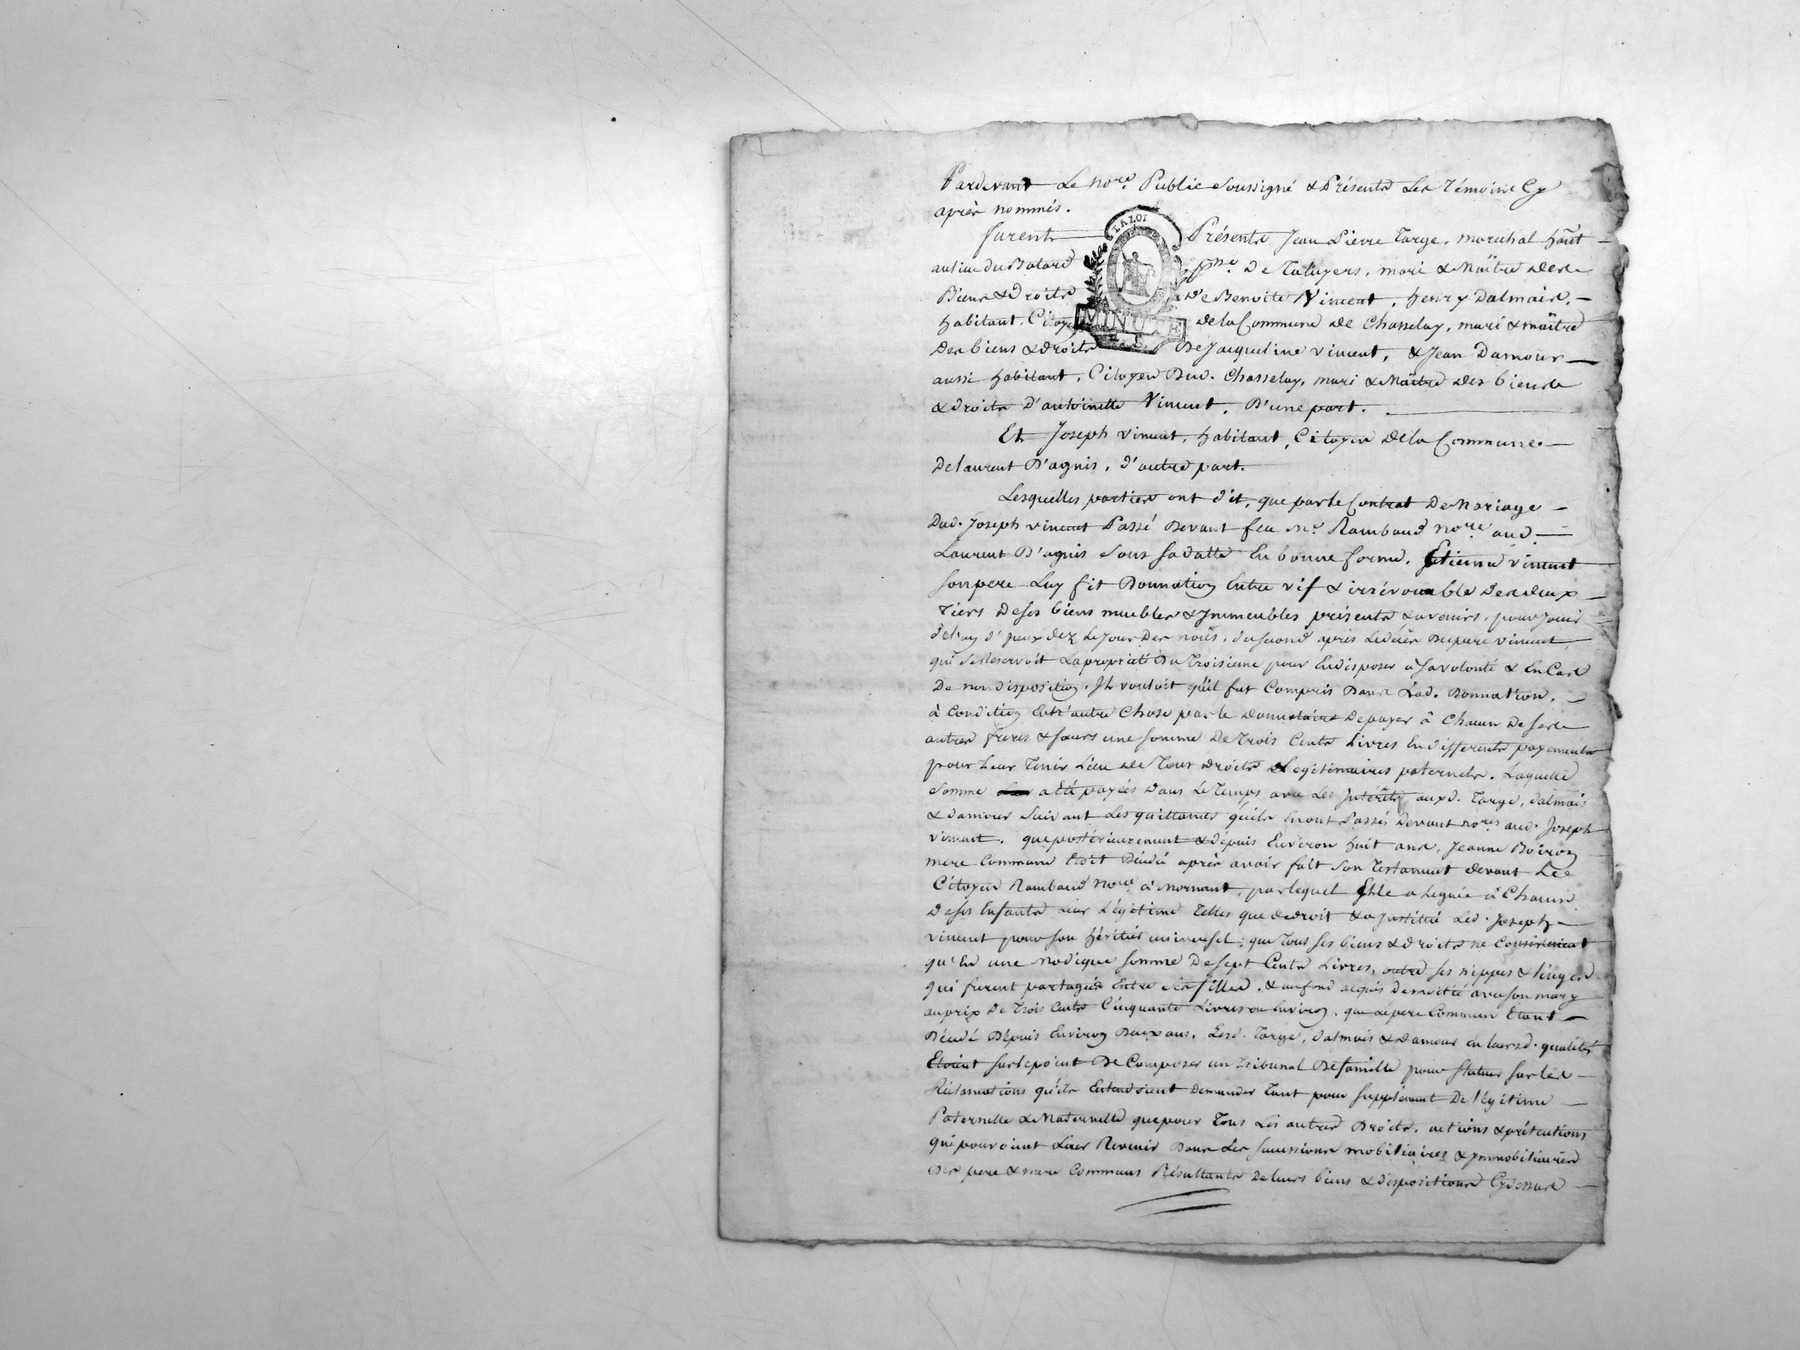 Pardevant Le no.re Public Soussigné & Présents Les Témoins Cy
après nommés.
LA LOI
furent Présents Jean Pierre Targe, marechal habt
au lieu du Batard De Taluyers, mari & Maître des
Biens & Droits de Benoite Vincent, henry Dalmais,
habitant, Citoyen de la Commune de Chasselay, mari & maître
MINUTE
Des biens & droits De Jacqueline vincent, & Jean Damour
aussi habitant, Citoyen Dud. Chasselay, mari & Maître des biens
& droits d'antoinette Vincent, D'une part.
Et Joseph vincent, habitant, Citoyen De la Commune
De laurent D'agnis, d'autre part.
Lesquelles parties ont dit, que par le Contrat De Mariage
Dud. Joseph vincent Passé Devant feu Me Rambaud nore aud.
Laurent D'agnis Sous Sa datte En bonne forme, Etienne vincent
Son pere Luy fit Donnation Entre vif & irrévocable Des deux
Tiers De ses biens meubles & Immeubles présents & avenirs, pour jouir
d'un d'yeux dez Le Jour Des noces, du second après Le décès Du pere vincent
qui Se Reservoit La propriété Du Troisieme pour En disposer à Sa volonté & En Cas
De non disposition, Il vouloit qu'il fut Compris Dans Lad. Donnation,
à Condition Entr'autre Chose par le donnataire De payer à Chacun De Ses
autres freres & sœurs une Somme De Trois Cents Livres En differents payements
pour Leur Tenir Lieu De Tous droits Legitimaires paternels. Laquelle
Somme a été payées Dans Le Temps avec Les Intérêts auxd. Targe, dalmais
& damour Suivant Les quittances qu'ils En ont Passés Devant nores aud. Joseph
vincent. que postérieurement & depuis Environ huit ans, Jeanne Boiron
mere Commune Est Décédé après avoir fait Son Testament devant Le
Citoyen Rambaud nore à Mornant, par lequel Elle a Leguée à Chacun
De Ses Enfants Leur Légitime Telles que de droit & a Institué Led. Joseph
vincent pour Son héritier universel; que Tous Ses biens & droits ne Consistoient
qu'En une modique Somme De Sept Cents Livres, outre Ses nippes & linges
qui furent partagés Entre Ses filles, & un fond acquis De moitié avec Son mary
au prix De Trois Cents Cinquante Livres ou Environ, que Le pere Commun Etant
Décédé Depuis Environ Deux ans, Lesd. Targe, dalmais & Damour en leursd. qualités
Etoient Sur Le point De Composer un Tribunal De famille pour Statuer Sur Les
Réclamations qu'ils Entendoient Demander Tant pour Supplément De légitime
Paternelle & Maternelle que pour Tous Les autres Droits, actions & prétentions
qui pouroient Leur Revenir Dans Les Successions mobiliaires & Immobiliaires
Des pere & mere Communs Résultants De leurs biens & dispositions Cydessus